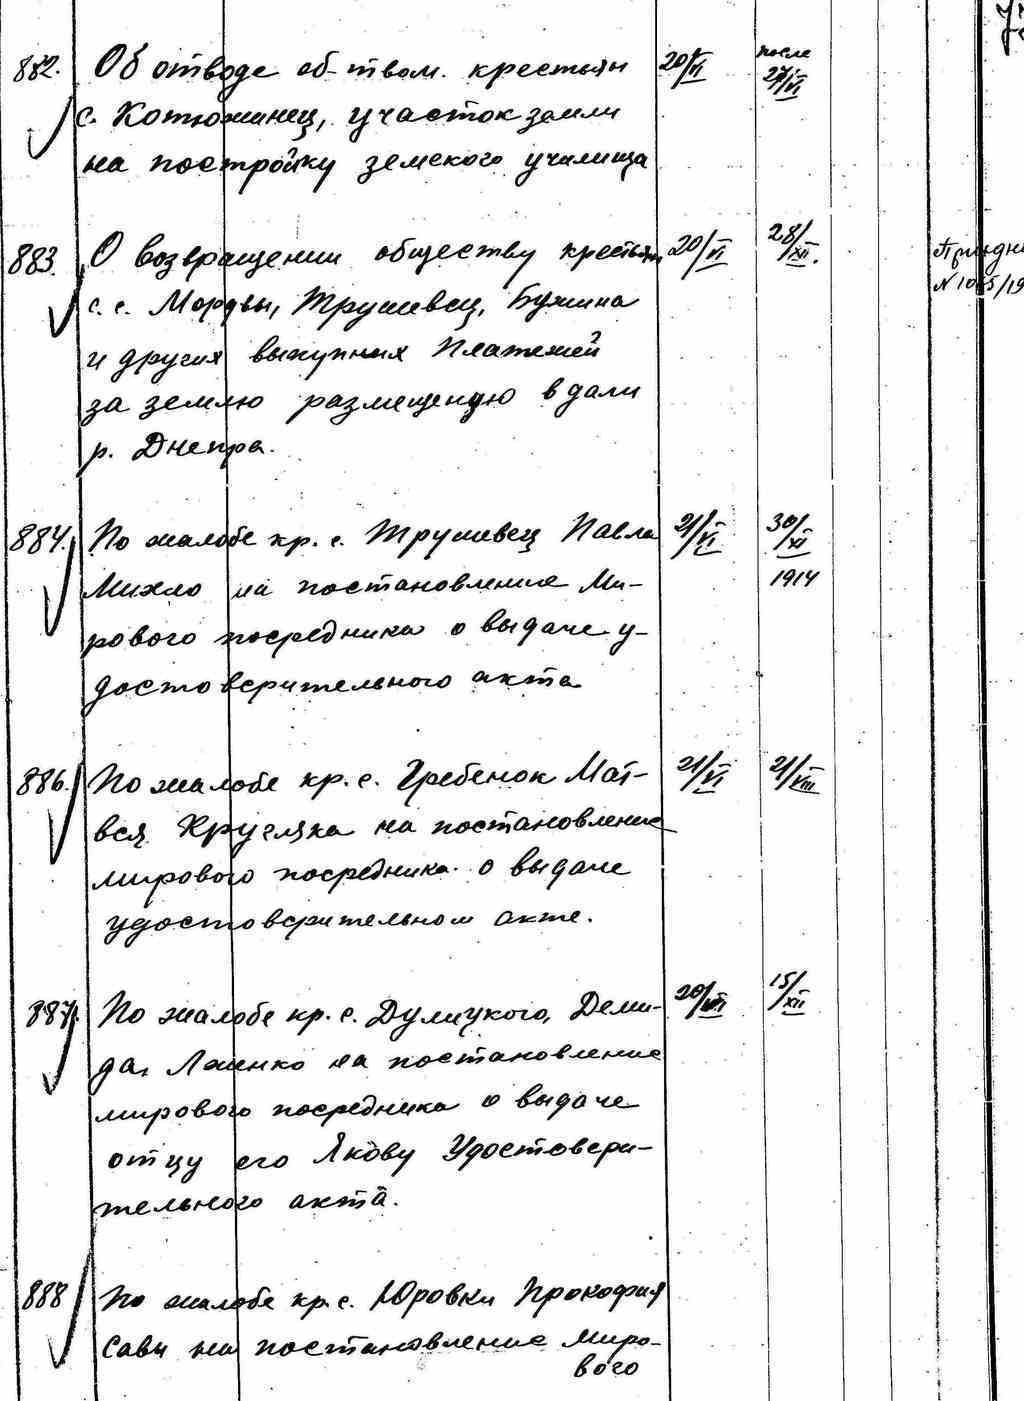 882. Об отводе об-твом. крестьян 20/VI после 27/VI
с. Котюжинец, участок земли
на постройку земского училища
883. О возвращении обществу крестьян 20/VI 28/XII.
с.с. Мордвы, Трушевец, Бужина
и других выкупных платежей
за землю размещеную вдали
р. Днепра.
884. По жалобе кр. с. Трушевец Павла 21/VI 30/XI 1914
Михно на постановление Ми-
рового посредника о выдаче у-
достоверительного акта
886. По жалобе кр. с. Гребенок Мат- 21/VI 21/VIII
вея Кругляка на постановление
мирового посредника о выдаче
удостоверительном акте.
887. По жалобе кр. с. Дулицкого, Деми- 15/XII
да, на постановление
мирового посредника о выдаче
отцу его Якову Удостовери-
тельного акта.
888 По жалобе кр. с. Юровки Прокофия
Савы на постановление миро-
вого